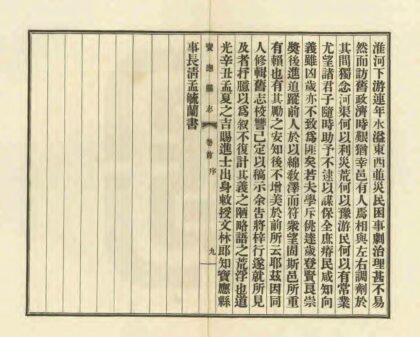 淮河下游連年水溢東西並災民困事劇治理甚不易
然而訪舊政濟時艱猶幸邑有人焉相與左右調劑於
其間獨念河渠何以利災荒何以豫游民何以有常業
尤望諸君子隨時助予不逮以謀保全庶瘠民咸知向
義雖凶歲亦不致爲匪矣若夫學斥佻達歲登賢良崇
獎後進追蹤前人於以綿敎澤而符衆望固斯邑所重
有賴也有其勵之安知後不增美於前所云耶茲因同
人修輯舊志校讐已定以稿示余吿將梓行遂就所見
及者抒臆以爲敘不復計其義之陋略語之荒浮也道
光辛丑孟夏之吉賜進士出身敕授文林郎知寶應縣
事長淸孟毓蘭書
寶應縣志 卷首 序 九